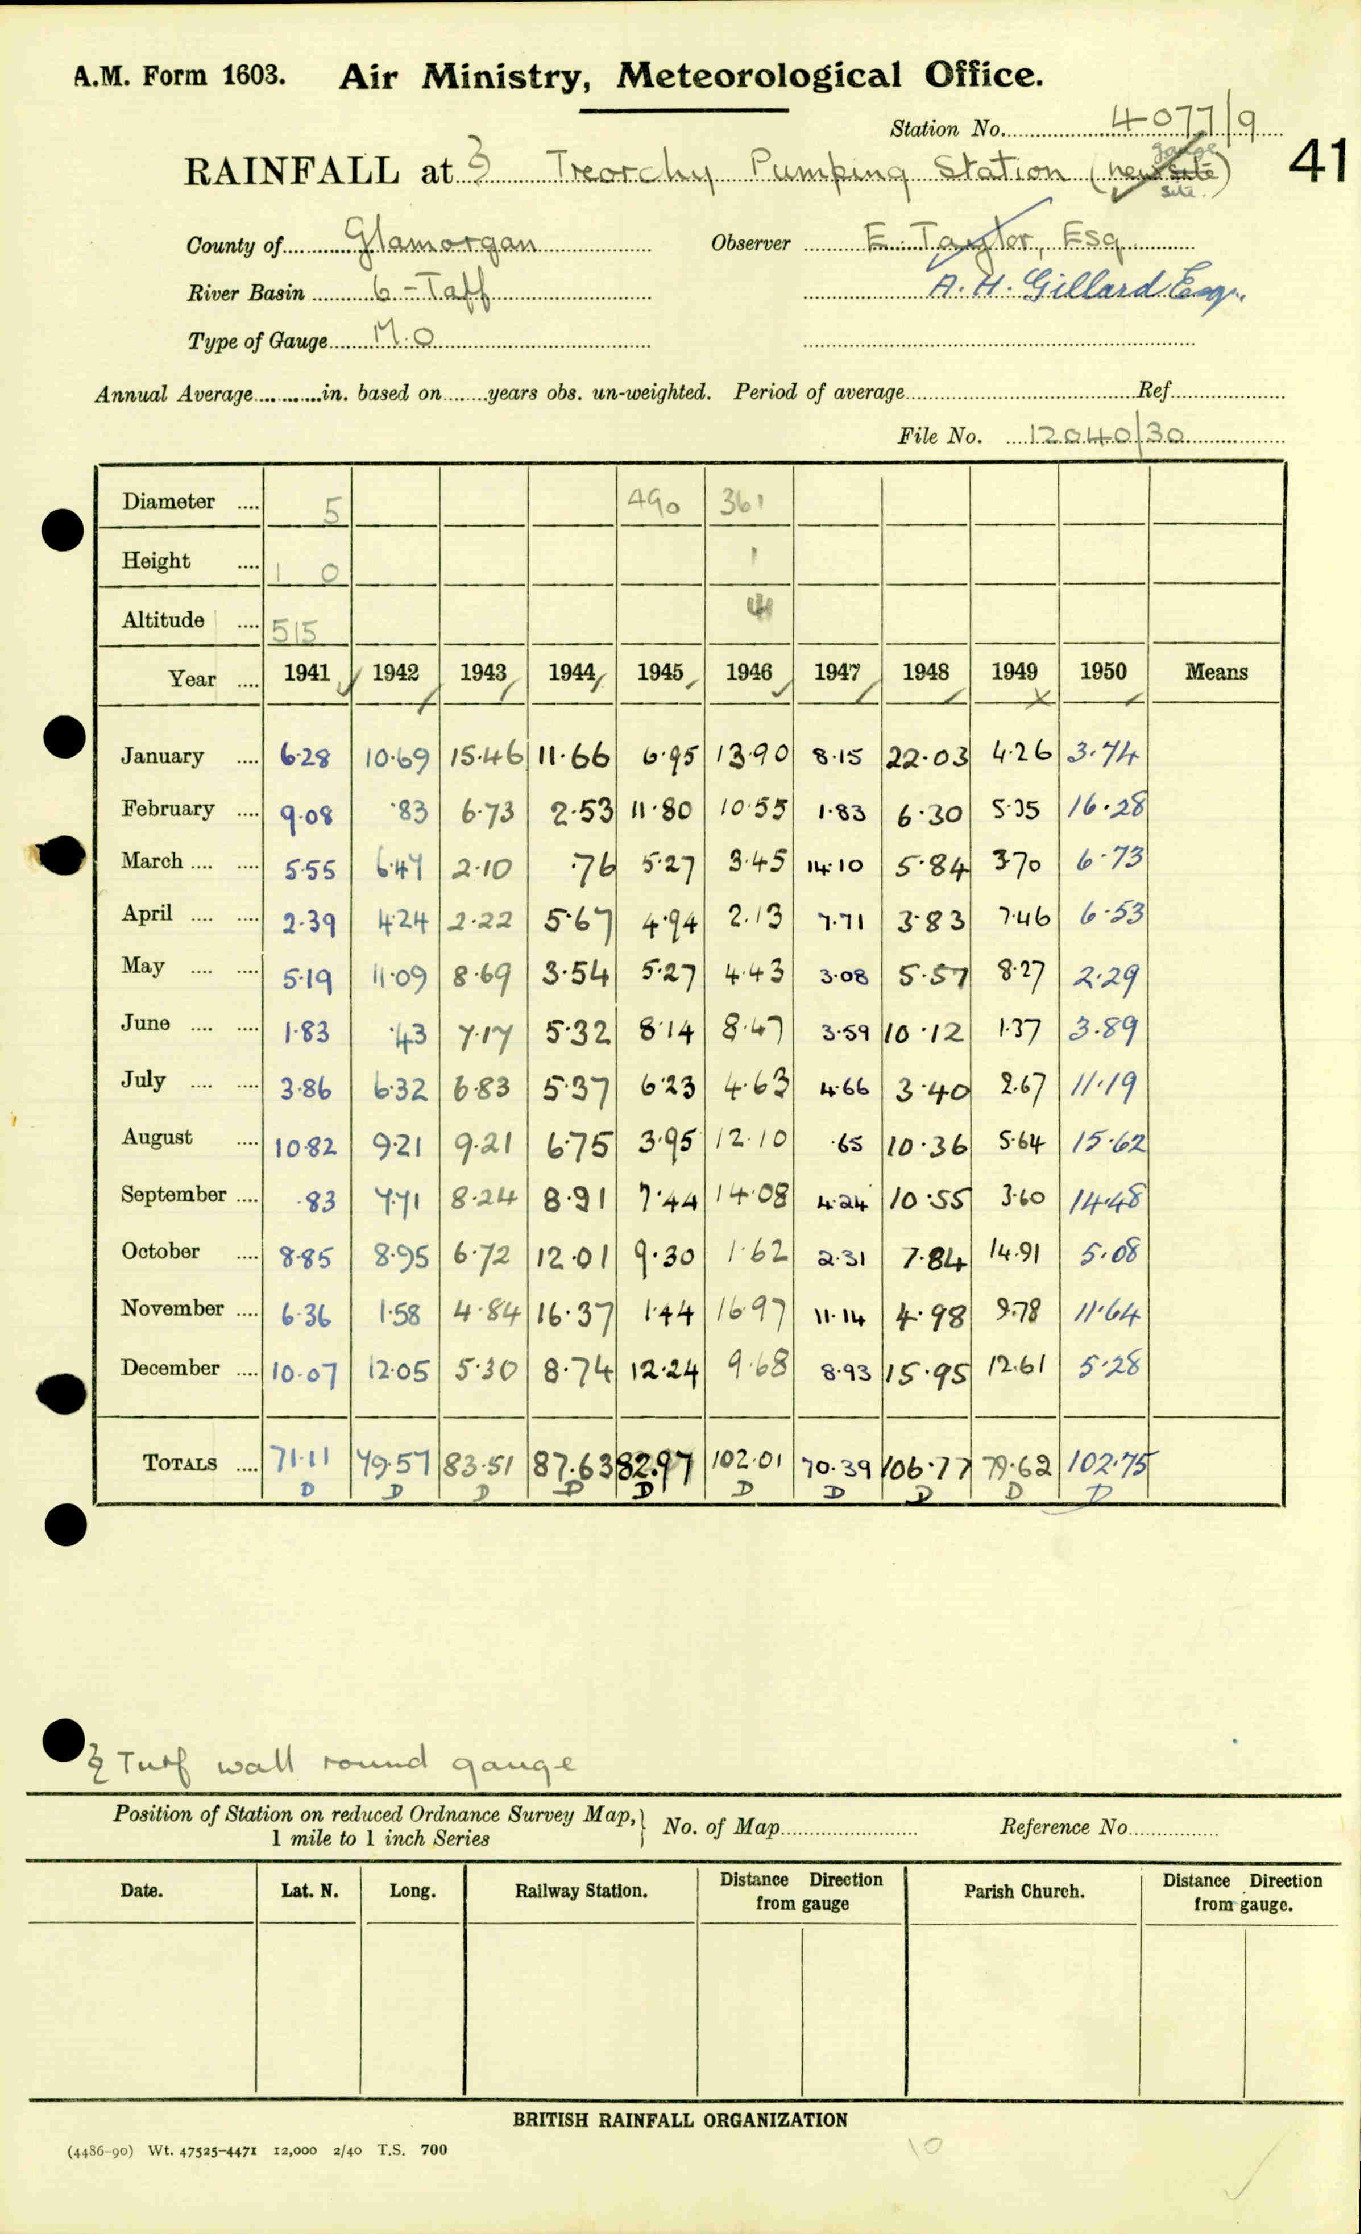 A.M. Form 1603. Air Ministry, Meteorological Office.
Station No. 4077/9
RAINFALL at Treorchy Pumping Station (new site) gauge site.
41
County of Glamorgan Observer E. Taylor, Esq
River Basin 6 - Taff A. H. Gillard Esq.
Type of Gauge M.O
Annual Average in. based on years obs. un-weighted. Period of average Ref
File No. 12040/30
Diameter 5 490 361
Height 1 0 1
Altitude 515
Year 1941 1942 1943 1944 1945 1946 1947 1948 1949 1950 Means
January 6.28 10.69 15.46 11.66 6.95 13.90 8.15 22.03 4.26 3.74
February 9.08 .83 6.73 2.53 11.80 10.55 1.83 6.30 5.35 16.28
March 5.55 6.47 2.10 .76 5.27 3.45 14.10 5.84 3.70 6.73
April 2.39 4.24 2.22 5.67 4.94 2.13 7.71 3.83 7.46 6.53
May 5.19 11.09 8.69 3.54 5.27 4.43 3.08 5.57 8.27 2.29
June 1.83 .43 7.17 5.32 8.14 8.47 3.59 10.12 1.37 3.89
July 3.86 6.32 6.83 5.37 6.23 4.63 4.66 3.40 2.67 11.19
August 10.82 9.21 9.21 6.75 3.95 12.10 .65 10.36 5.64 15.62
September .83 7.71 8.24 8.91 7.44 14.08 4.24 10.55 3.60 14.48
October 8.85 8.95 6.72 12.01 9.30 1.62 2.31 7.84 14.91 5.08
November 6.36 1.58 4.84 16.37 1.44 16.97 11.14 4.98 9.78 11.64
December 10.07 12.05 5.30 8.74 12.24 9.68 8.93 15.95 12.61 5.28
TOTALS 71.11 79.57 83.51 87.63 82.97 102.01 70.39 106.77 79.62 102.75
D D D D D D D D D D
Turf wall round gauge
Position of Station on reduced Ordnance Survey Map, 1 mile to 1 inch Series } No. of Map Reference No
Date. Lat. N. Long. Railway Station. Distance Direction from gauge Parish Church. Distance Direction from gauge.
BRITISH RAINFALL ORGANIZATION
(4486-90) Wt. 47525-4471 12,000 2/40 T.S. 700
10